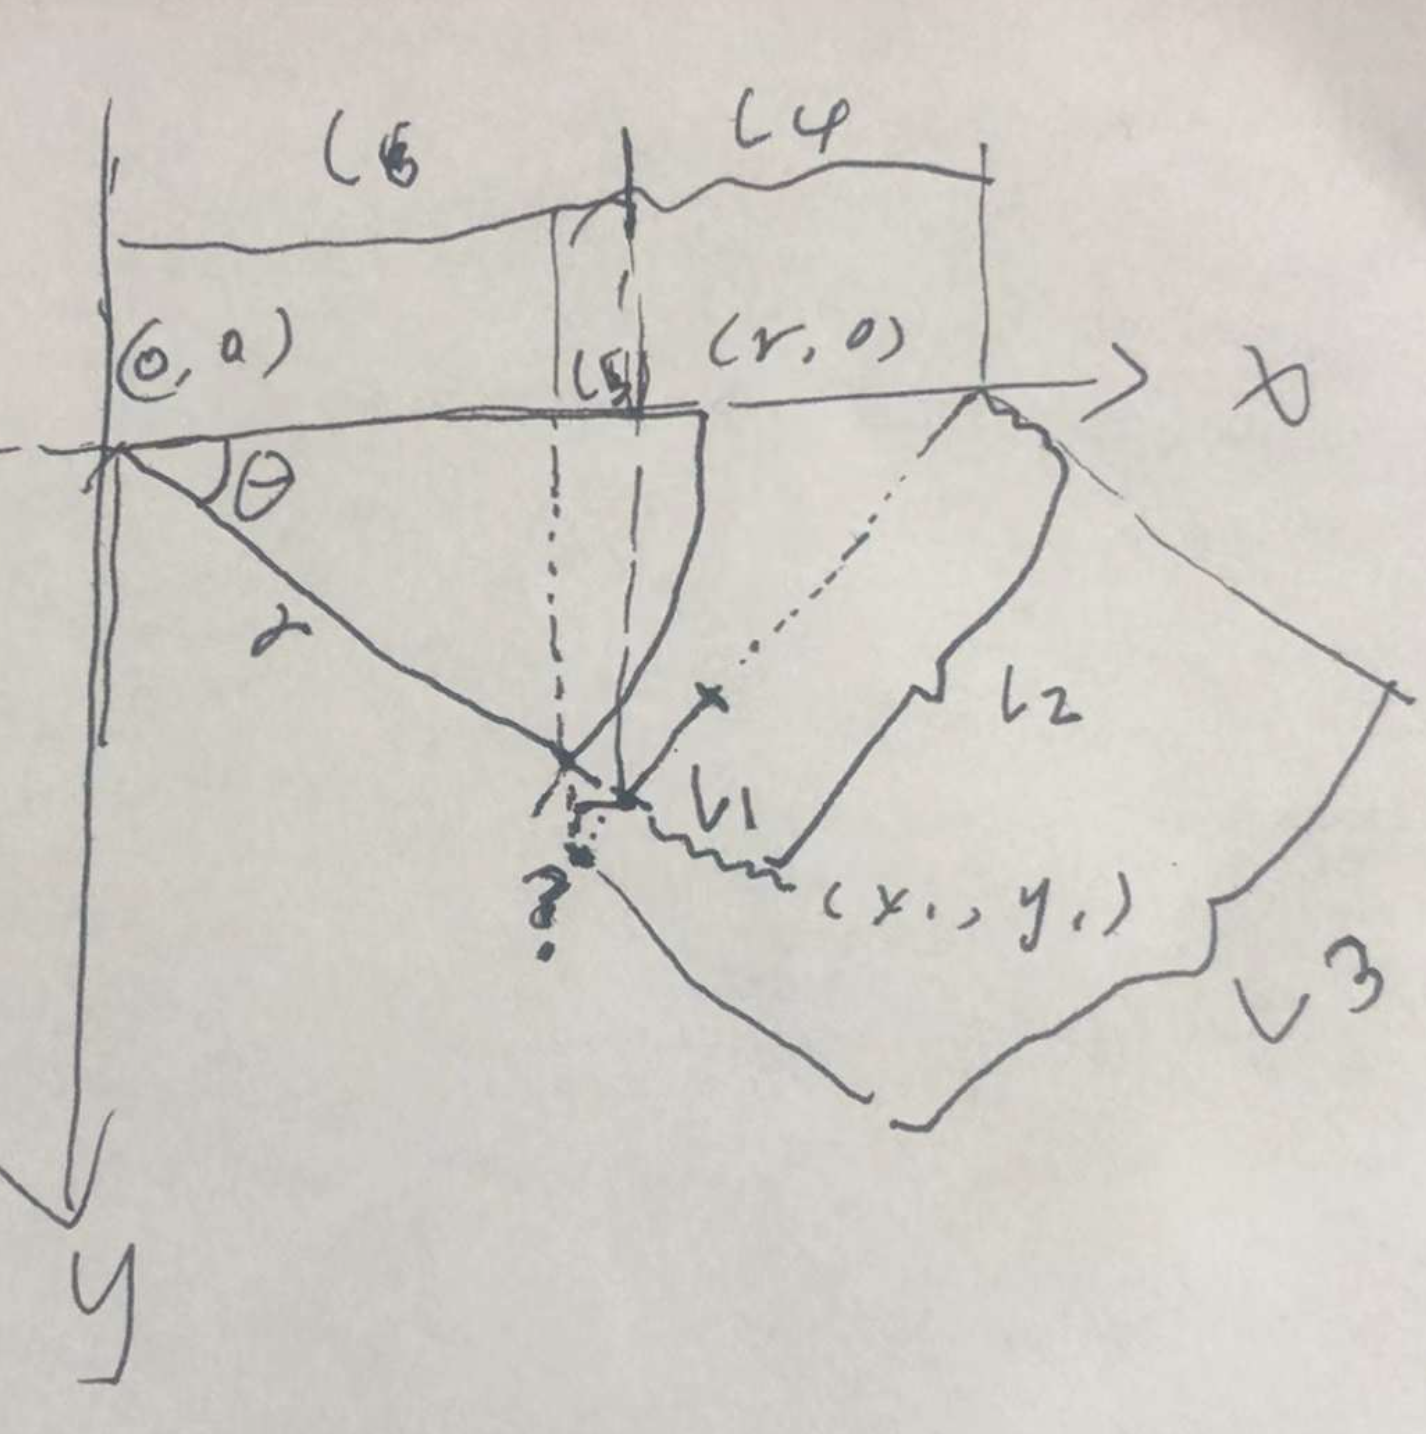 L6
L4
(0, 0)
(r, 0)
L5
x
θ
r
L2
L1
?
(x1, y1)
L3
y